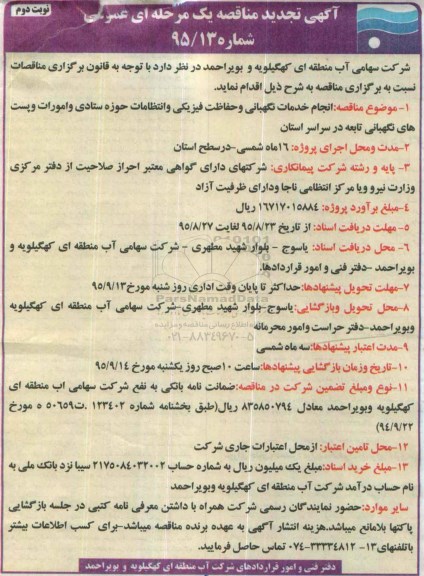 نوبت دوم
آگهی تجدید مناقصه یک مرحله ای عمومی
شماره ۹۵/۱۳
شرکت سهامی آب منطقه ای کهگیلویه و بویراحمد در نظر دارد با توجه به قانون برگزاری مناقصات
نسبت به برگزاری مناقصه به شرح ذیل اقدام نماید.
۱-موضوع مناقصه:انجام خدمات نگهبانی وحفاظت فیزیکی وانتظامات حوزه ستادی وامورات وپست
های نگهبانی تابعه در سراسر استان
۲-مدت ومحل اجرای پروژه: ۱۶ماه شمسی-درسطح استان
۳- پایه و رشته شرکت پیمانکاری: شرکتهای دارای گواهی معتبر احراز صلاحیت از دفتر مرکزی
وزارت نیرو ویا مرکز انتظامی ناجا ودارای ظرفیت آزاد
۴-مبلغ برآورد پروژه: ۱۶۷۱۷۰۱۵۸۸۴ ریال
۵-مهلت دریافت اسناد: از تاریخ ۹۵/۸/۲۳ لغایت ۹۵/۸/۲۷
۶- محل دریافت اسناد: یاسوج - بلوار شهید مطهری - شرکت سهامی آب منطقه ای کهگیلویه و
بویراحمد -دفتر فنی و امور قراردادها.
۷-مهلت تحویل پیشنهادها:حداکثر تا پایان وقت اداری روز شنبه مورخ۹۵/۹/۱۳
۸-محل تحویل وبازگشایی:یاسوج-بلوار شهید مطهری-شرکت سهامی آب منطقه ای کهگیلویه
وبویراحمد-دفتر حراست وامور محرمانه
۹-مدت اعتبار پیشنهادها:سه ماه شمسی
۱۰-تاریخ وزمان بازگشایی پیشنهادها:ساعت ۱۰صبح روز یکشنبه مورخ ۹۵/۹/۱۴
۱۱-نوع ومبلغ تضمین شرکت در مناقصه:ضمانت نامه بانکی به نفع شرکت سهامی اب منطقه ای
کهگیلویه وبویراحمد معادل ۸۳۵۸۵۰۷۹۴ ریال(طبق بخشنامه شماره ۱۲۳۴۰۲ .ت۵۰۶۵۹ ه مورخ
۹۴/۹/۲۲)
۱۲-محل تامین اعتبار: ازمحل اعتبارات جاری شرکت
۱۳-مبلغ خرید اسناد:مبلغ یک میلیون ریال به شماره حساب ۲۱۷۵۰۸۴۰۳۲۰۰۲ سیبا نزد بانک ملی به
نام حساب درآمد شرکت آب منطقه ای کهگیلویه وبویراحمد
سایر موارد:حضور نمایندگان رسمی شرکت همراه با داشتن معرفی نامه کتبی در جلسه بازگشایی
پاکتها بلامانع میباشد.هزینه انتشار آگهی به عهده برنده مناقصه میباشد-برای کسب اطلاعات بیشتر
باتلفنهای۱۳- ۳۳۳۳۴۸۱۲-۰۷۴ تماس حاصل فرمایید.
دفتر فنی و امور قراردادهای شرکت آب منطقه ای کهگیلویه و بویراحمد
ParsNamadData
۰۲۱-۸۸۳۴۹۶۷۰-۵